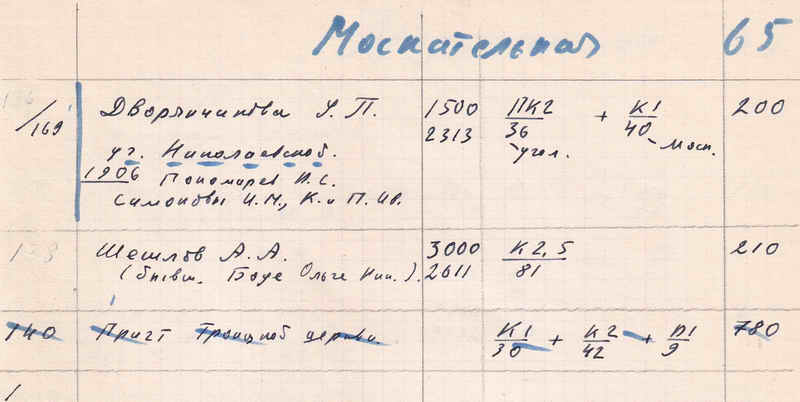 Москательная 65
/169 Дворянчикова У. П. 1500 ПК2/36 + К1/40 200
2313 угол. Моск.
уг. Николаевской.
1906 Пономарев И. С.
Симоновы И. М., К. и П. Ив.
Шешлов А. А. 3000 К2,5/81 210
(бывш. Боде Ольге Ник.). 2611
140 Причт Троицкой церкви. К1/30 + К2/42 + П1/9 780